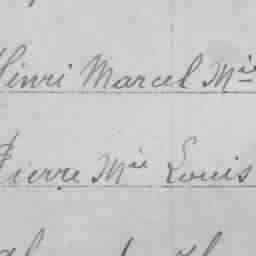 Henri Marcel Mie
Pierre Mie Louis